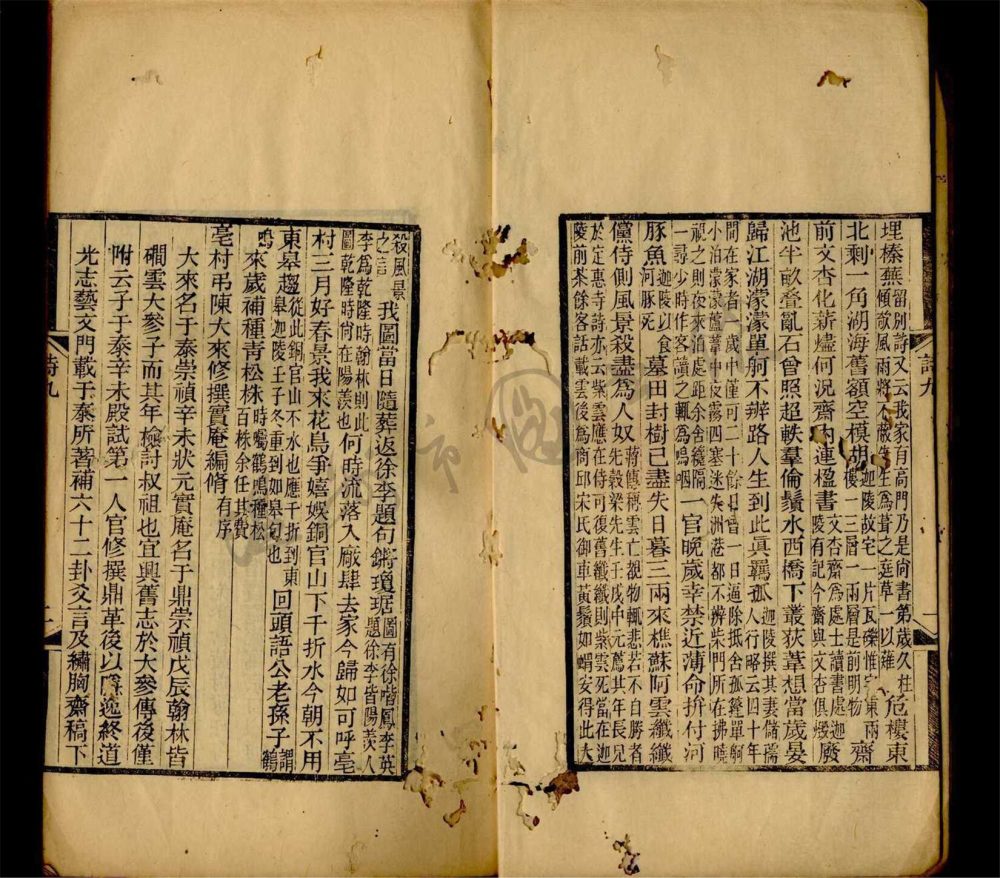 埋榛蕪留別詩又云我家有高門乃是尚書第歲久柱傾欹風雨將不蔽生爲葺之庭草一以薙危樓東
北剩一角湖海舊額空模胡迦陵故宅一片瓦礫惟字東兩樓一三層一兩層是前明物齋
前文杏化薪爐何況齋內連楹書文杏齋爲處士讀書處迦陵有記今齋與文杏俱燬廢
池半畝叠亂石曾照超軼羣倫鬚水西橋下叢荻葦想當歲晏
歸江湖濛濛單舸不辨路人生到此眞羈孤迦陵撰其妻儲孺人行略云四十年
間在家者歲中僅可二十餘日嘗一日過除抵舍孤篷單舸
小泊濛濛蘆葦中夜霧四塞迷失洲港都不辨柴門所在拂曉
視之則夜來泊處距余舍纔隔
一尋少時作客讀之輒爲嗚咽一官晚歲幸禁近薄命拚付河
豚魚迦陵以食河豚死墓田封樹已盡失日暮三兩來樵蘇阿雲纖纖
儻侍側風景殺盡爲人奴蔣傳稱雲亡覩物輒悲若不自勝者
先毅梁先生壬戌中元薦其年長兄
於定惠寺詩亦云紫雲應在侍可復舊纖纖則紫雲死當在迦
陵前茶餘客話載雲後爲商邱宋氏御車黃鬚如蝟安得此大
殺風景之言我圖當日隨葬返徐李題句鏘瓊琚圖有徐喈鳳李英題徐李皆陽羨人
李爲乾隆時翰林則此圖乾隆時尚在陽羨也何時流落入廠肆去家今歸如可呼亳
村三月好春景我來花鳥爭嬉娛銅官山下千折水今朝不用
東皋趨從此銅官山下水也應千折到東皋迦陵壬子冬重到如皋句也回頭語公老孫子謂鶴
鳴來歲補種青松株時囑鶴鳴種松百株余任其費
亳村弔陳大來修撰實庵編脩有序
大來名于泰崇禎辛未狀元實庵名于鼎崇禎戊辰翰林皆
磵雲大參子而其年檢討叔祖也宜興舊志於大參傳後僅
附云子于泰辛未殿試第一人官修撰鼎革後以隱逸終道
光志藝文門載于泰所著補六十二卦爻言及繡胸齋稿下
詩九
詩九